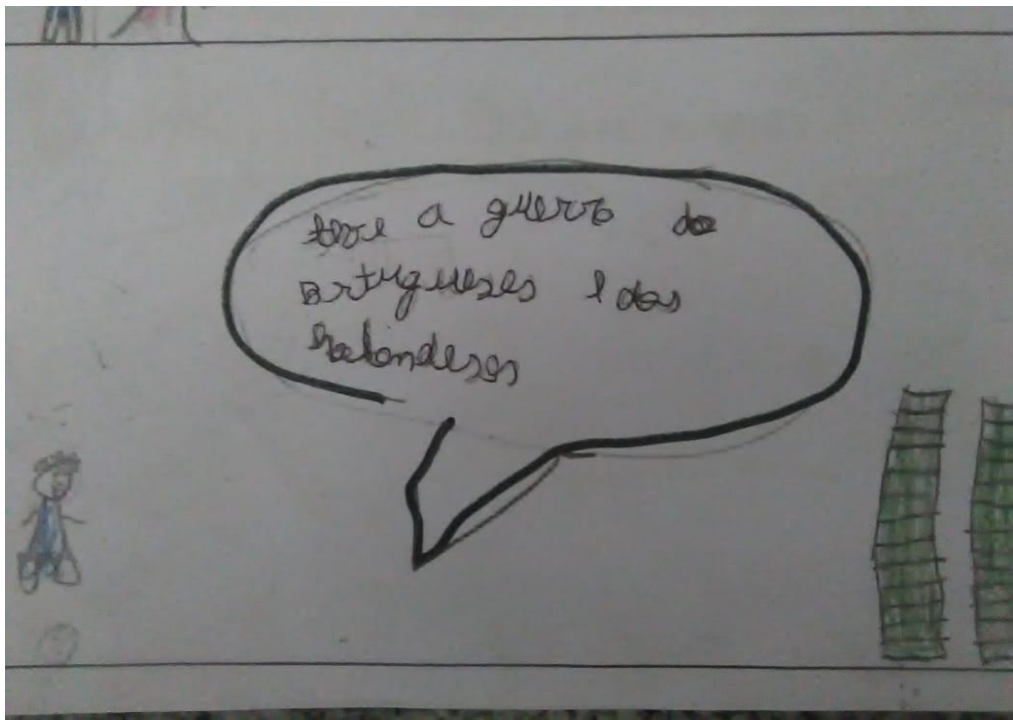 teve a guerra dos
Portugueses e dos
holandeses